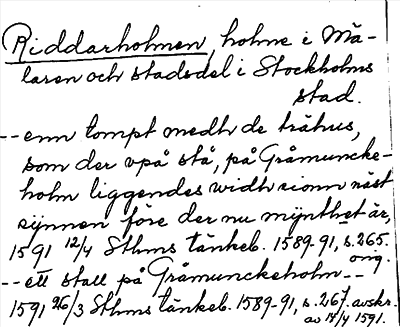 Riddarholmen, holme i Mä-
laren och stadsdel i Stockholms
stad.
-- enn tompt medh de trähus,
som der vpå stå, på Gråmuncke-
holm liggendes widh sionn näst
synnen före der nu mÿnthet är,
1591 12/4 Sthms tänkeb. 1589-91, s. 265.
orig.
-- ett stall på Gråmunckeholm --
1591 26/3 Sthms tänkeb. 1589-91, s. 267. avskr.
av 14/4 1591.